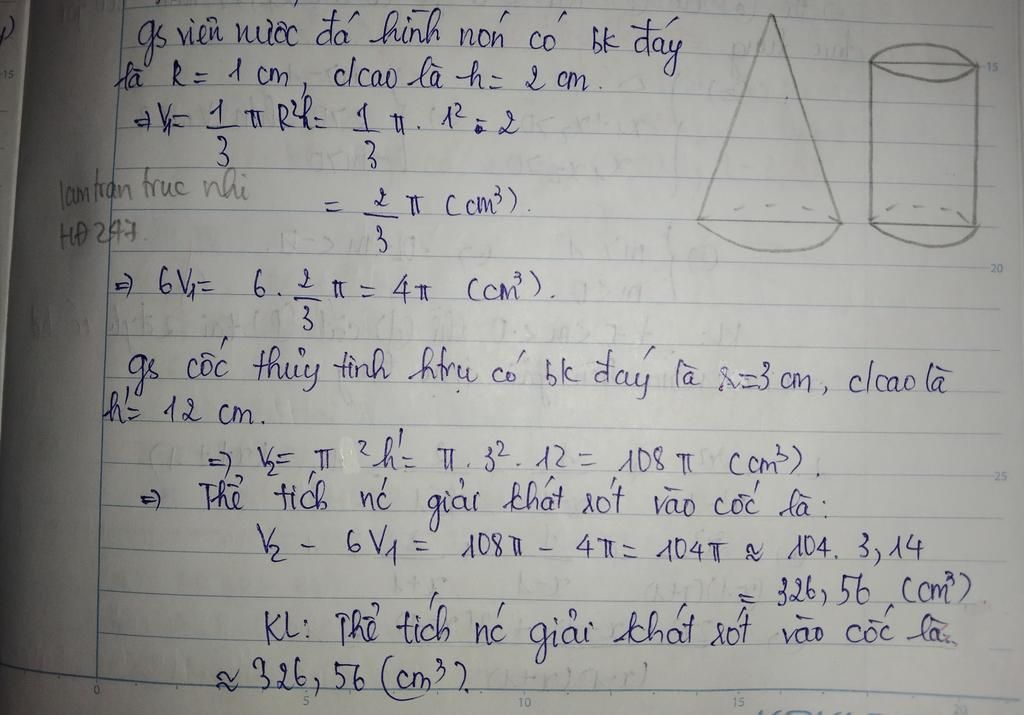 gs viên nước đá hình nón có bk đáy
là R = 1 cm, c/cao là h = 2 cm.
⇒ V₁ = 1/3 π R²h = 1/3 π . 1² . 2
lamtran truc nhi
= 2/3 π (cm³).
HĐ 247
⇒ 6V₁ = 6 . 2/3 π = 4π (cm³).
gs cốc thủy tinh htrụ có bk đáy là r=3 cm, c/cao là
h' = 12 cm.
⇒ V₂ = π ² h' = π . 3² . 12 = 108 π (cm³).
⇒ Thể tích nc giải khát rót vào cốc là:
V₂ - 6V₁ = 108π - 4π = 104π ≈ 104. 3,14
= 326,56 (cm³)
KL: Thể tích nc giải khát rót vào cốc là
≈ 326,56 (cm³).
15
15
20
25
0
5
10
15
20